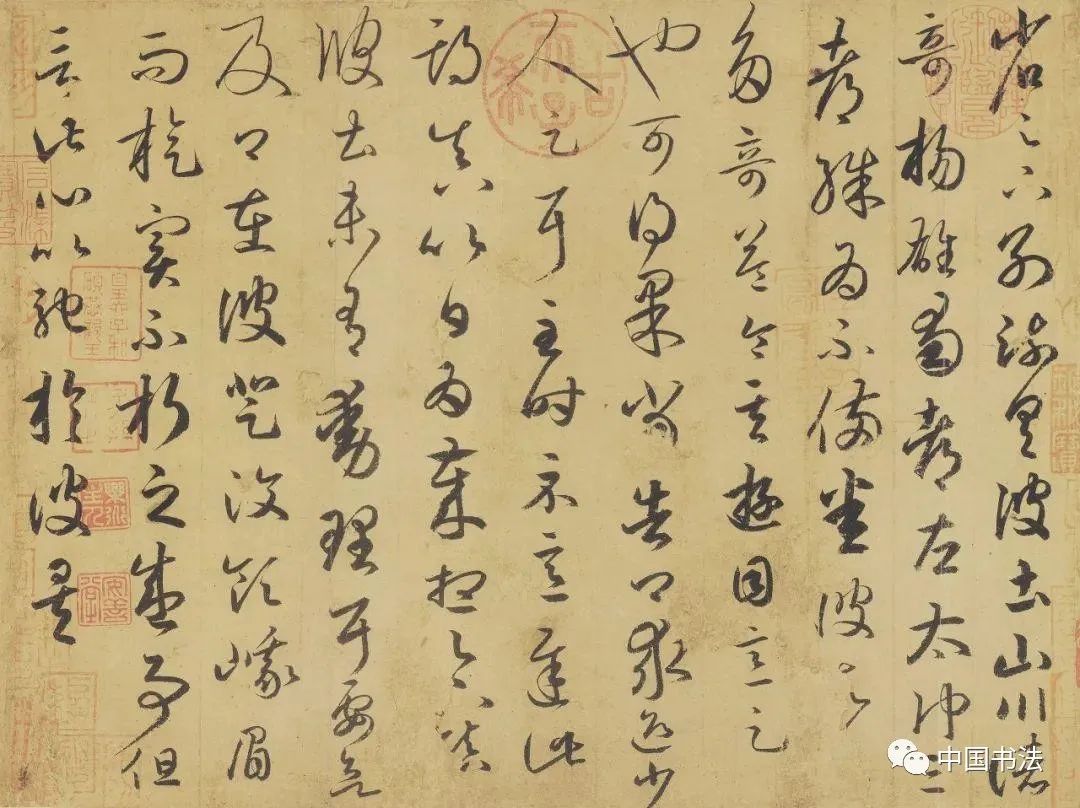 省足下別疏具彼土山川諸
奇楊雄蜀都左太沖三
都殊為不備悉彼故
多奇益令其遊目意足
也可得果當告卿求迎少
人足耳至時示意遲此
期真以日為歲想足下鎮
彼土未有動理耳要欲
及卿在彼登汶領峨眉
而旋實不朽之盛事但
言此心以馳於彼矣
古希天子
中国书法